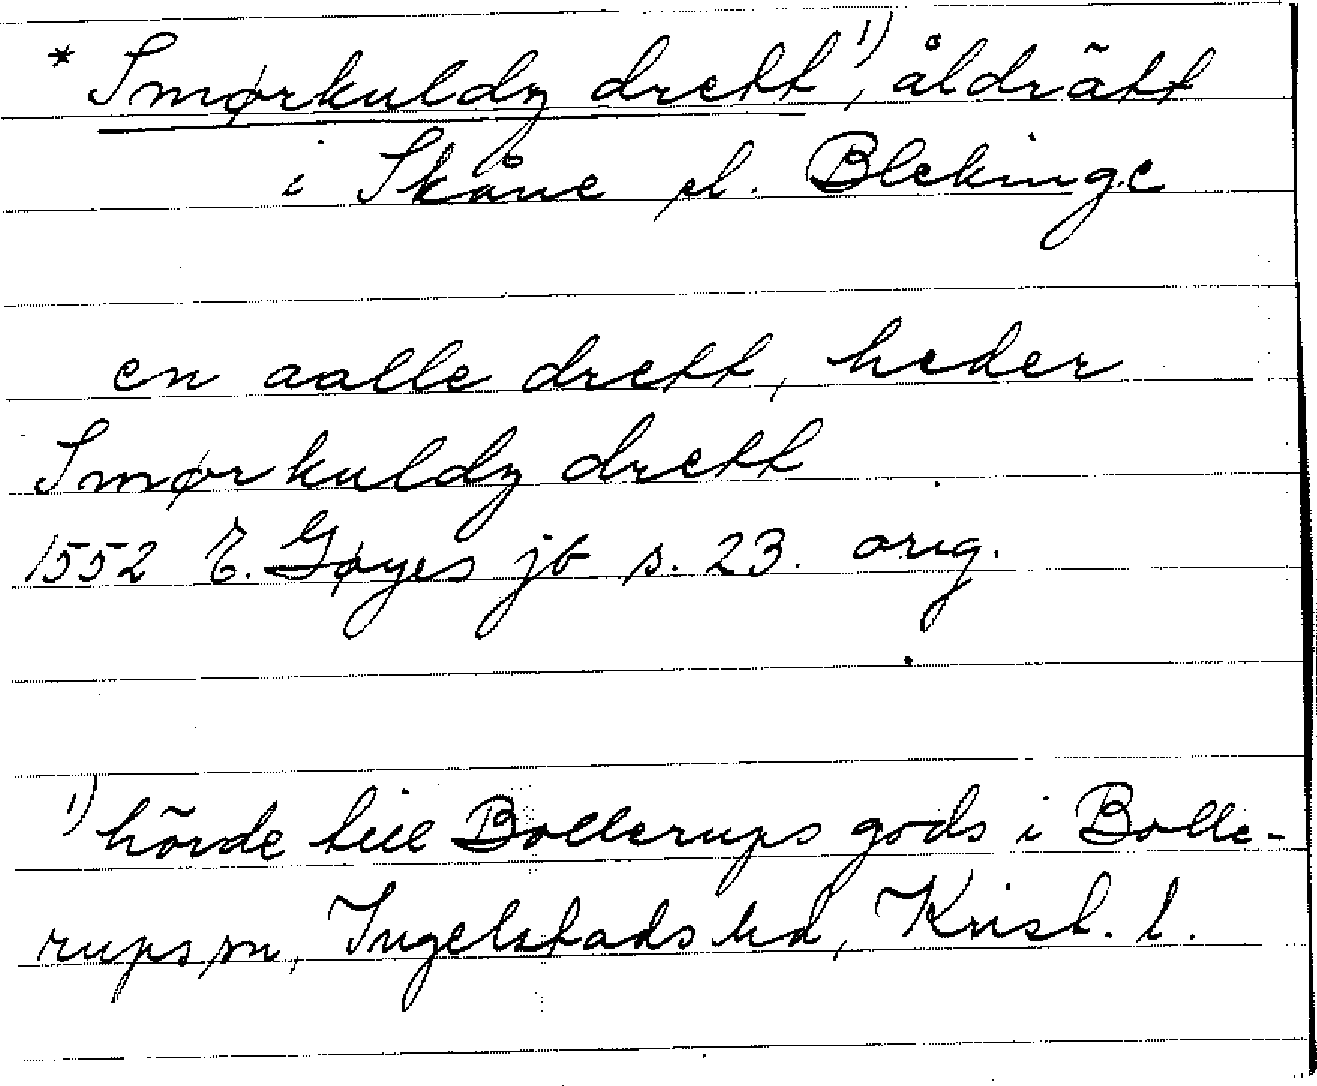 * Smørkuldz drett ¹⁾, åldrätt
i Skåne el. Blekinge
en aalle drett, heder
Smørkuldz drett
1552 E. Gøyes jb s. 23. orig.
¹⁾ hörde till Bollerups gods i Bolle-
rups sn, Ingelstads hd, Krist. l.